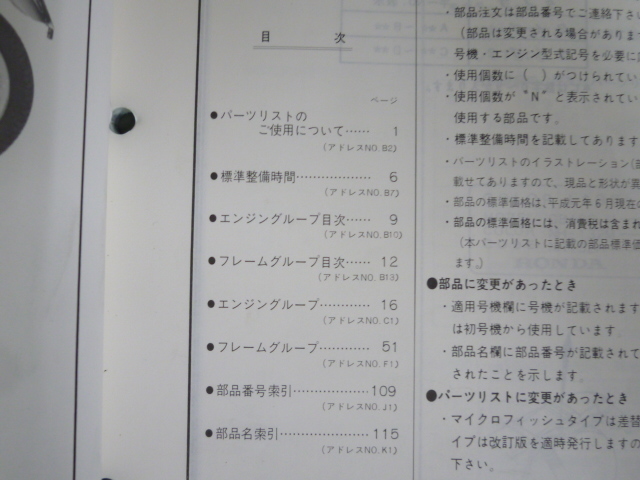 目　　次
ページ
●パーツリストの
ご使用について…… 1
(アドレスNO.B2)
●標準整備時間……………… 6
(アドレスNO.B7)
●エンジングループ目次…… 9
(アドレスNO.B10)
●フレームグループ目次…… 12
(アドレスNO.B13)
●エンジングループ………… 16
(アドレスNO.C1)
●フレームグループ………… 51
(アドレスNO.F1)
●部品番号索引………………109
(アドレスNO.J1)
●部品名索引…………………115
(アドレスNO.K1)
・部品注文は部品番号でご連絡下さ
(部品は変更される場合があります
号機・エンジン型式記号を必要に
・使用個数に（ ）がつけられてい
・使用個数が "N" と表示されてい
使用する部品です.
・標準整備時間を記載してあります
・パーツリストのイラストレーション
載せてありますので、現品と形状が異
・部品の標準価格は、平成元年6月現在の
・部品の標準価格には、消費税は含まれ
(本パーツリストに記載の部品標準価
ます。)
●部品に変更があったとき
・適用号機欄に号機が記載されます
は初号機から使用しています.
・部品名欄に部品番号が記載されて
されたことを示します.
●パーツリストに変更があったとき
・マイクロフィッシュタイプは差替
イプは改訂版を適時発行しますの
下さい。